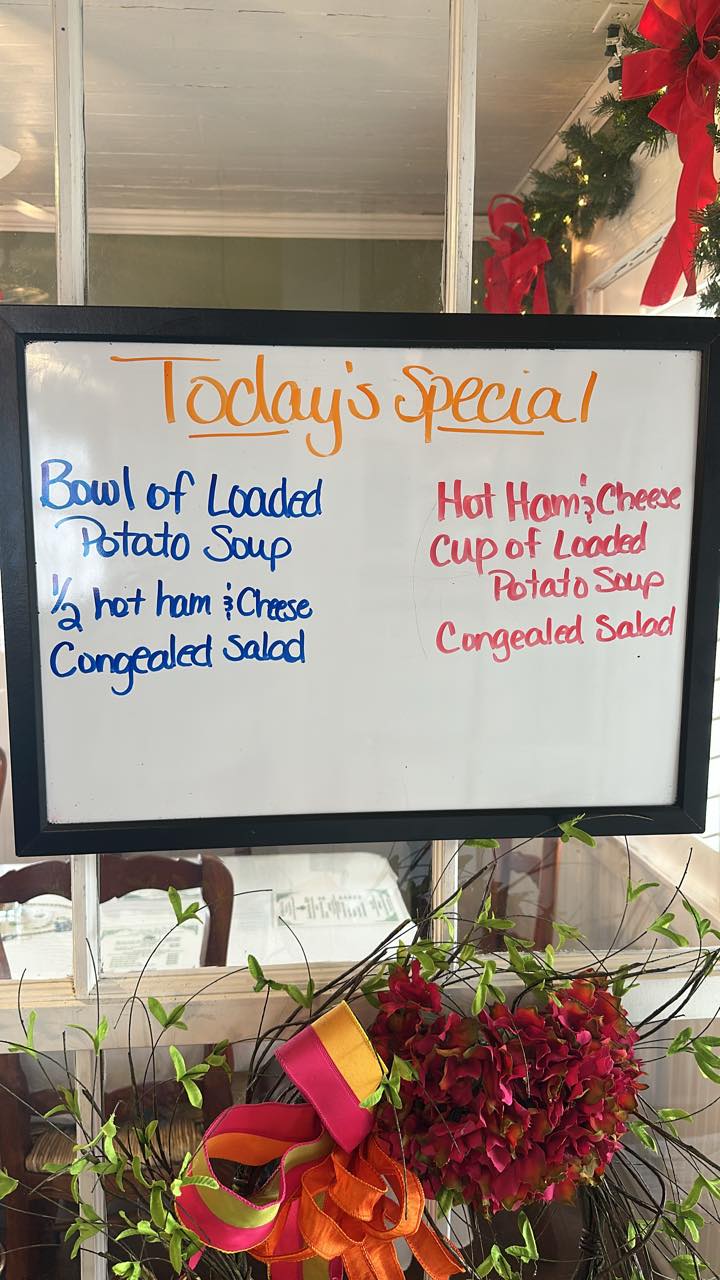 Today's Special
Bowl of Loaded
Potato Soup
1/2 hot ham & Cheese
Congealed Salad
Hot Ham & Cheese
Cup of Loaded
Potato Soup
Congealed Salad